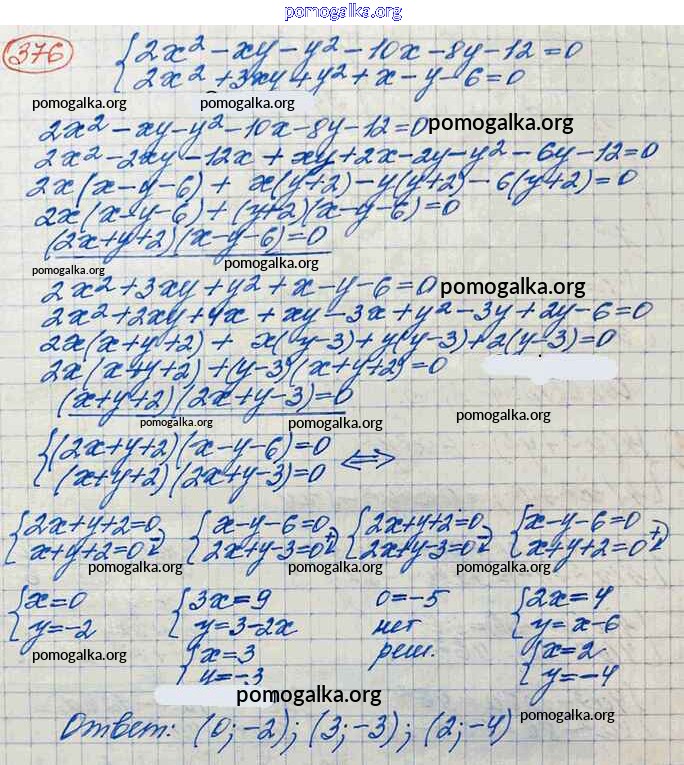 pomogalka.org
376 { 2x² - xy - y² - 10x - 8y - 12 = 0
2x² + 3xy + y² + x - y - 6 = 0
pomogalka.org pomogalka.org
2x² - xy - y² - 10x - 8y - 12 = 0 pomogalka.org
2x² - 2xy - 12x + xy + 2x - 2y - y² - 6y - 12 = 0
2x(x - y - 6) + x(y+2) - y(y+2) - 6(y+2) = 0
2x(x - y - 6) + (y+2)(x - y - 6) = 0
(2x+y+2)(x-y-6) = 0
pomogalka.org pomogalka.org
2x² + 3xy + y² + x - y - 6 = 0 pomogalka.org
2x² + 2xy + 4x + xy - 3x + y² - 3y + 2y - 6 = 0
2x(x+y+2) + x(y-3) + y(y-3) + 2(y-3) = 0
2x(x+y+2) + (y-3)(x+y+2) = 0
(x+y+2)(2x+y-3) = 0
pomogalka.org pomogalka.org pomogalka.org
{ (2x+y+2)(x-y-6) = 0
(x+y+2)(2x+y-3) = 0 ⟺
{ 2x+y+2=0 { x-y-6=0 { 2x+y+2=0 { x-y-6=0
x+y+2=0 2x+y-3=0 2x+y-3=0 x+y+2=0
pomogalka.org pomogalka.org pomogalka.org
{ x=0 { 3x=9 0=-5 { 2x=4
y=-2 y=3-2x нет y=x-6
pomogalka.org { x=3 реш. { x=2
y=-3 y=-4
pomogalka.org
Ответ: (0;-2); (3;-3); (2;-4) pomogalka.org